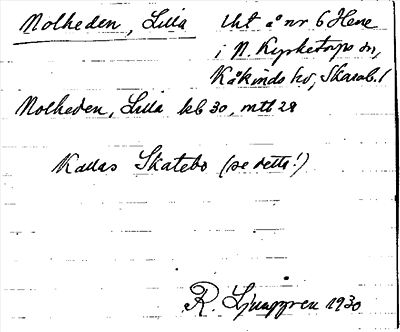 Nolheden, Lilla Uht å nr 6 Hene
i N. Kyrketorps sn,
Kåkinds hd, Skarab. l
Nolheden, Lilla kb 30, mtl 28
Kallas Skatebo (se detta!)
R. Ljunggren 1930